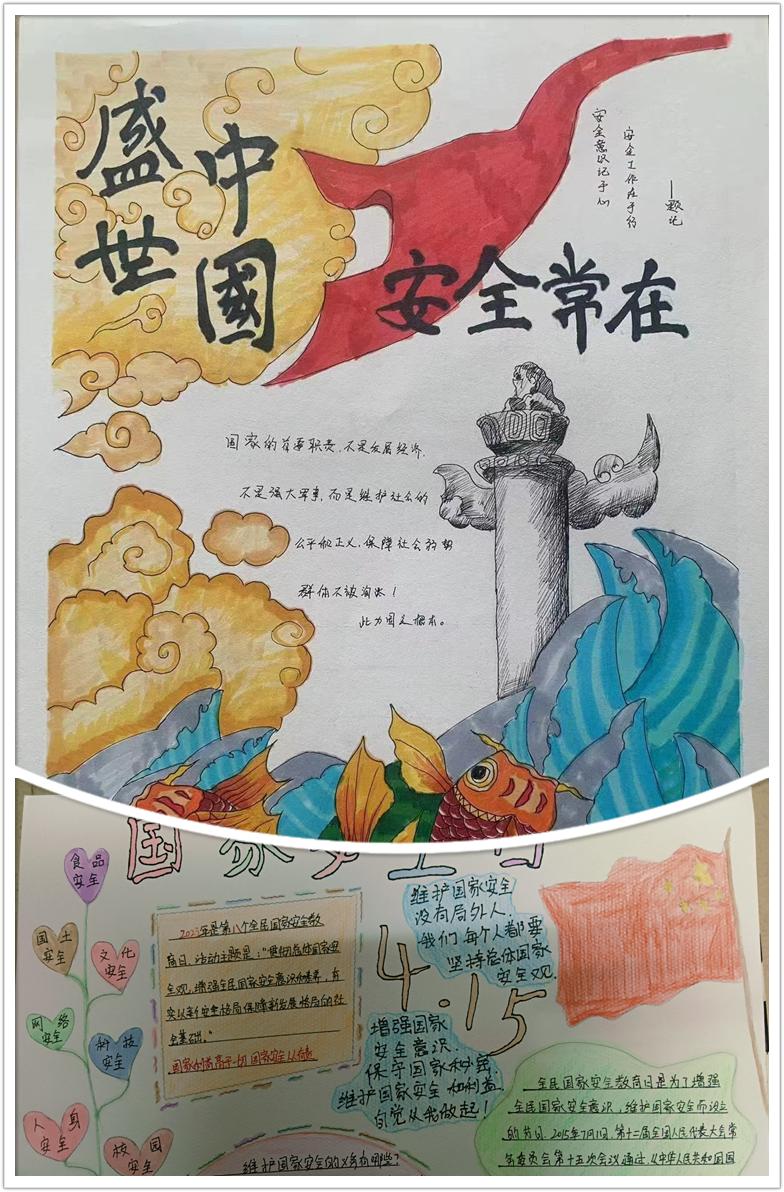 盛世
中國
安全常在
安全意识记于心
安全工作在于行
——题记
国家的首要职责，不是发展经济，
不是强大军事，而是维护社会的
公平和正义，保障社会弱势
群体不被淘汰！
国家安全日
食品
安全
国土
安全
文化
安全
网络
安全
科技
安全
人身
安全
校园
安全
2023年是第八个全民国家安全教
育日，活动主题是："贯彻总体国家安
全观，增强全民国家安全意识和素养，夯
实以新安全格局保障新发展格局的社
会基础。"
国家利益高于一切 国家安全
4.15
维护国家安全
没有局外人，
我们每个人都要
坚持总体国家
安全观.
增强国家
安全意识
保守国家秘密
维护国家安全和利益
向党从我做起！
全民国家安全教育日是为了增强
全民国家安全意识，维护国家安全而设立
的节日. 2015年7月1日. 第十二届全国人民代表大会常
务委员会第十五次会议通过.
维护国家安全的义务有哪些?